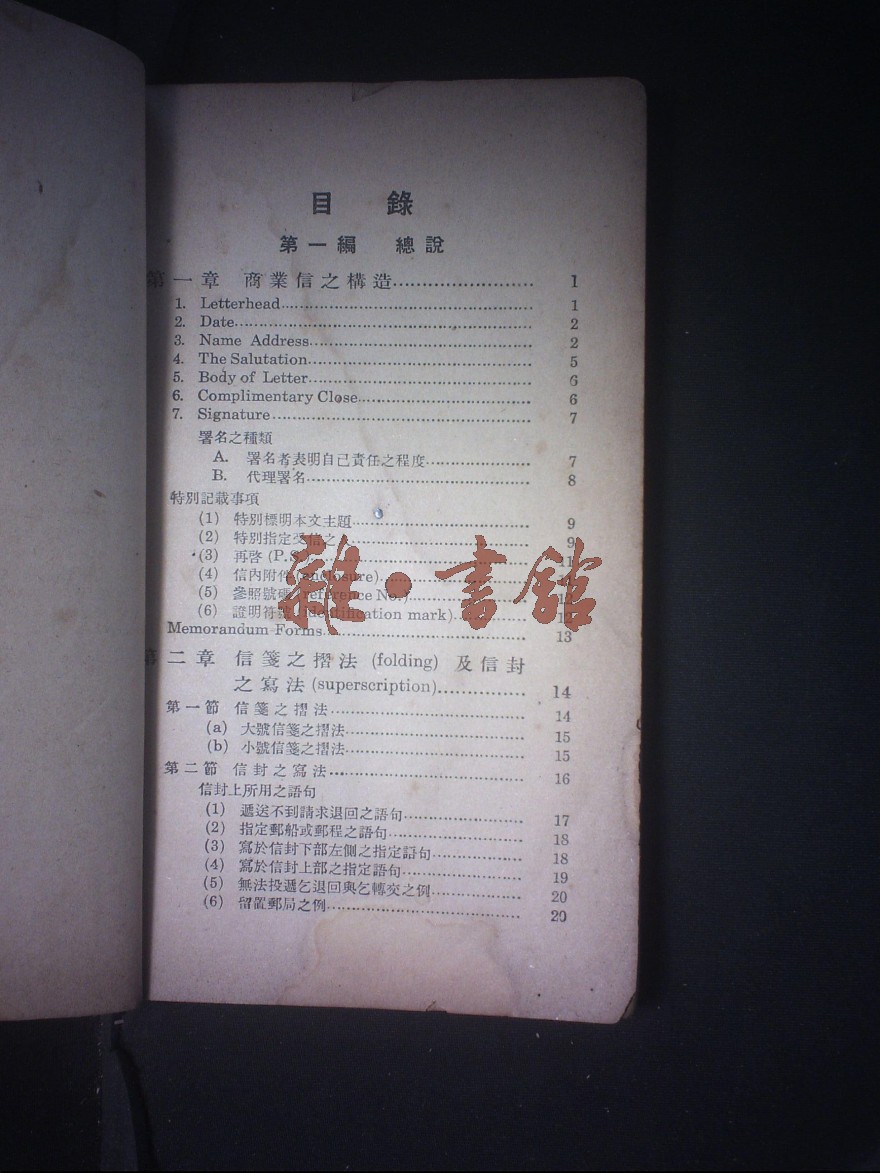 目 錄
第一編 總說
第一章 商業信之構造........................ 1
1. Letterhead........................ 1
2. Date........................ 2
3. Name Address........................ 2
4. The Salutation........................ 5
5. Body of Letter........................ 6
6. Complimentary Close........................ 6
7. Signature........................ 7
署名之種類
A. 署名者表明自己責任之程度........................ 7
B. 代理署名........................ 8
特別記載事項
(1) 特別標明本文主題........................ 9
(2) 特別指定受信之........................ 9
(3) 再啓 (P.S.)........................ 11
(4) 信內附件 (enclosure)........................
(5) 參照號碼 (reference No.)........................
(6) 證明符號 (identification mark)........................ 12
Memorandum Forms........................ 13
第二章 信箋之摺法 (folding) 及信封
之寫法 (superscription)............... 14
第一節 信箋之摺法........................ 14
(a) 大號信箋之摺法........................ 15
(b) 小號信箋之摺法........................ 15
第二節 信封之寫法........................ 16
信封上所用之語句
(1) 遞送不到請求退回之語句........................ 17
(2) 指定郵船或郵程之語句........................ 18
(3) 寫於信封下部左側之指定語句........................ 18
(4) 寫於信封上部之指定語句........................ 19
(5) 無法投遞乞退回與乞轉交之例........................ 20
(6) 留置郵局之例........................ 20
雜·書館